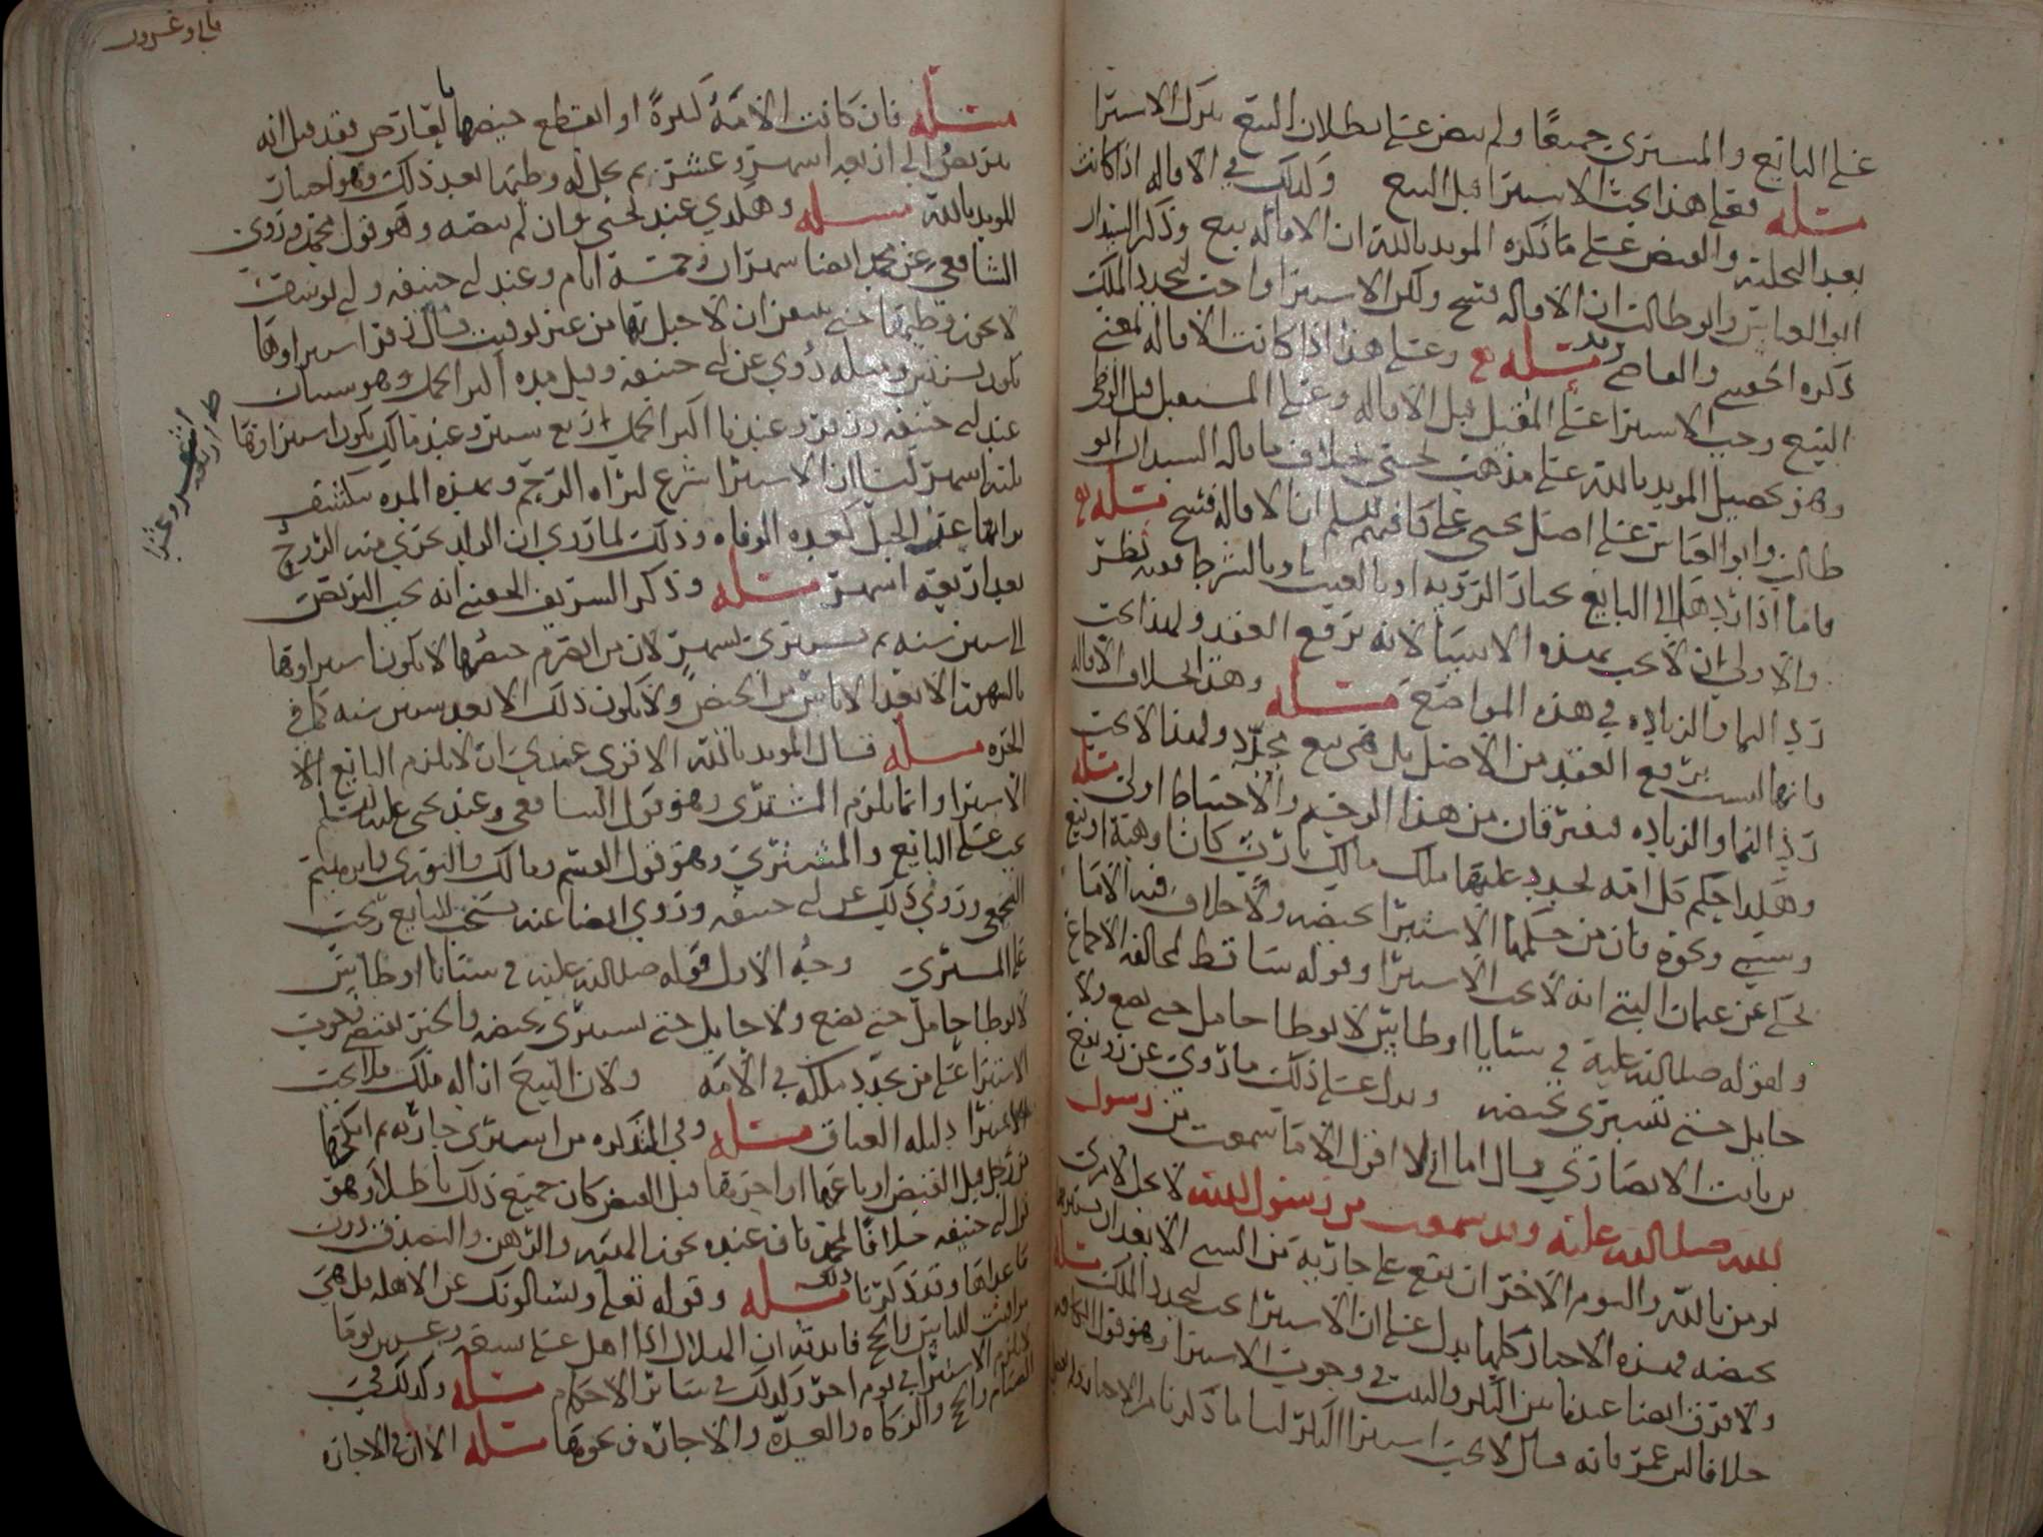 على البائع والمشتري جميعا ولم ينص على بطلان البيع بترك الاستبرا
مسئله فعلى هذا يجب الاستبرا قبل البيع وكذلك في الاقاله اذا كانت
بعد التخليه والقبض على ما ذكره المويد بالله ان الاقاله بيع وذكر السيدان
ابو العباس وابو طالب ان الاقاله فسخ ولكن الاستبرا واجب لتجدد الملك
ذكره الحقيني والقاضي زيد مسئله وعلى هذا اذا كانت الاقاله بمعنى
البيع وجب الاستبرا على المقيل قبل الاقاله وعلى المستقيل قبل الوطي
وهو تحصيل المويد بالله على مذهب يحيى خلاف ما قاله السيدان ابو
طالب وابو العباس على اصل يحيى عليه السلم ان الاقاله فسخ مسئله
فاما اذا ردها الى البايع بخيار الرويه او بالعيب او بالشرط ففيه نظر
والاولى ان لا يجب بهذه الاشيا لانه يرفع العقد ولهذا يجب
رد النما والزياده في هذه المواضع مسئله وهذا بخلاف الاقاله
فانها ليست برفع العقد من الاصل بل هي بيع مجدد ولهذا لا يجب
رد النما والزياده فيفترقان من هذا الوجه والاحتياط اولى مسئله
وهكذا حكم كل امه تجدد عليها ملك مالك بارث كان او هبه او بيع
وسبي ونحوه فان من حكمها الاستبرا بحيضه ولا خلاف فيه الا ما
يحكى عن عثمان البتي انه لا يجب الاستبرا وقوله ساقط لمخالفه الاجماع
ولقوله صلى الله عليه في سبايا اوطاس لا توطا حامل حتى تضع ولا
حايل حتى تستبرى بحيضه ويدل على ذلك ما روي عن رويفع
بن ثابت الانصاري قال اما اني لا اقول الا ما سمعت من رسول
الله صلى الله عليه وقد سمعت من رسول الله لا يحل لامرئ
يومن بالله واليوم الاخر ان يقع على جاريه من السبي الا بعد ان يستبريها
بحيضه فهذه الاخبار كلها تدل على ان الاستبرا يجب لتجدد الملك مسئله
ولا فرق ايضا عندنا بين البكر والثيب في وجوب الاستبرا وهو قول الكافه
خلافا لابن عمر فانه قال لا يجب استبرا البكر لنا ما ذكرنا من الاخبار
مسئله فان كانت الامه كبيرة او انقطع حيضها لعارض فقد قيل انه
يتربص الى اربعه اشهر وعشر ثم يحل له وطيها بعد ذلك وهو اختيار
المويد بالله مسئله وهكذا عند يحيى وان لم ينصه وهو قول محمد وروى
الشافعي عن محمد ايضا شهران وخمسة ايام وعند ابي حنيفه وابي يوسف
لا يجوز وطيها حتى يتيقن ان لا حبل بها من غير توقيت وقال زفر استبراوها
يكون بسنتين ومثله روي عن ابي حنيفه وقيل مده اكثر الحمل وهو سنتان
عند ابي حنيفه وزفر وعندنا اكثر الحمل اربع سنين وعند مالك يكون استبراوها
بثلثه اشهر لنا ان الاستبرا شرع لبراه الرحم وبهذه المده ينكشف
براتها عن الحبل كعده الوفاه وذلك لما روي ان الولد يجري فيه الروح
بعد اربعه اشهر مسئله وذكر الشريف الحقيني انه يجب التربص
الى ستين سنه ثم يستبرى بشهر لان من انصرم حيضها لا يكون استبراوها
بالشهر الا بعد الاياس من الحيض ولا يكون ذلك الا بعد ستين سنه كما في
الحره مسئله قال المويد بالله الاقوى عندي ان لا يلزم البايع
الاستبرا وانما يلزم المشتري وهو قول الشافعي وعند يحيى عليه السلم
يجب على البايع والمشتري وهو قول القسم ومالك والثوري وابراهيم
النخعي وروي ذلك عن ابي حنيفه وروي ايضا عنه يستحب للبايع ويجب
على المشتري وجه الاول قوله صلى الله عليه في سبايا اوطاس
لا توطا حامل حتى تضع ولا حايل حتى تستبرى بحيضه والخبر يقتضي وجوب
الاستبرا على من تجدد ملكه في الامه ولان البيع ازاله ملك فلا يجب
الاستبرا دليله العتاق مسئله وفي التذكره من اشترى جاريه ثم انكحها
من رجل قبل القبض او باعها او اجرها قبل القبض كان جميع ذلك باطلا وهو
قول ابي حنيفه خلافا لمحمد فان عنده يجوز الهبه والرهن والتصدق دون
ما عداها وقد ذكرنا ذلك مسئله وقوله تعلى ويسالونك عن الاهله قل هي
مواقيت للناس والحج فايدته ان الهلال اذا اهل على تسعه وعشرين يوما
يلزم الاستبرا في يوم احر وكذلك في سائر الاحكام مسئله وكذلك في
الصيام والحج والزكاه والعده والاجاره ونحوها مسئله الا ان في الاجاره
ط اربعه
اشهر وعشرا